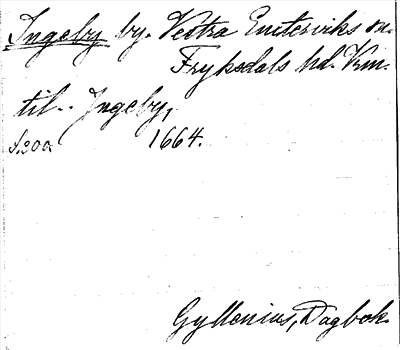 Ingeby by. Vestra Emterviks sn.
Fryksdals hd. Vrm.
til.. Ingeby,
S.200 1664.
Gyllenius, Dagbok.